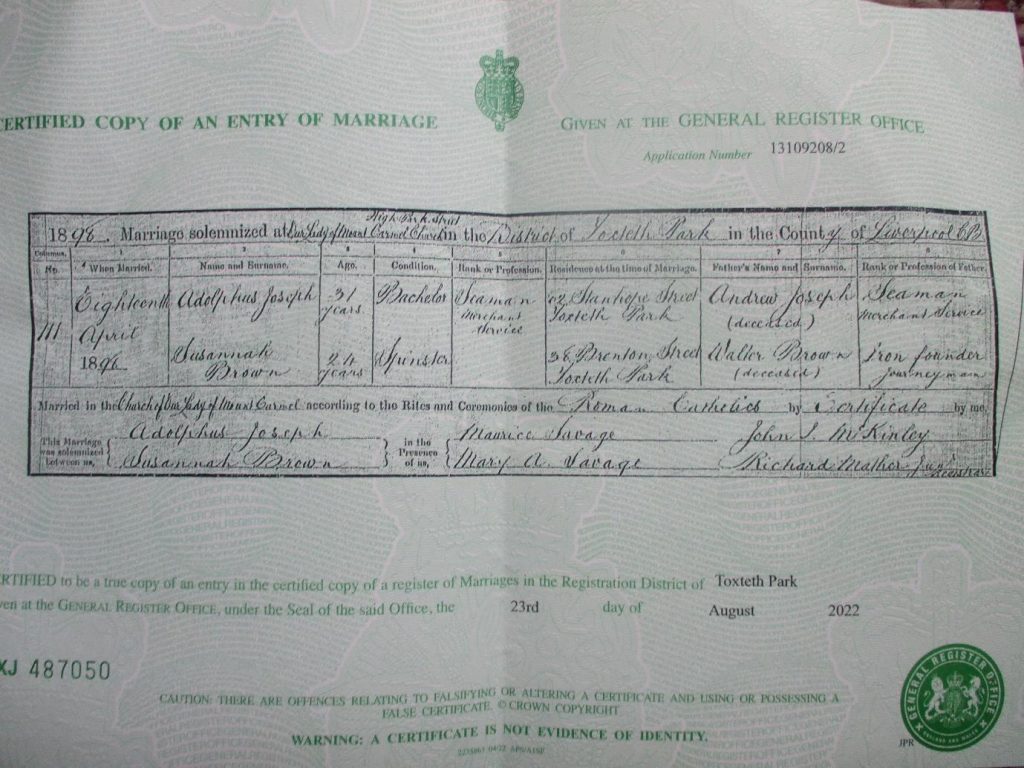 CERTIFIED COPY OF AN ENTRY OF MARRIAGE
GIVEN AT THE GENERAL REGISTER OFFICE
Application Number 13109208/2
High Park Street
1896. Marriage solemnized at Our Lady of Mount Carmel Church in the District of Toxteth Park in the County of Liverpool C.B.
Columns. 1 2 3 4 5 6 7 8
No. When Married. Name and Surname. Age. Condition. Rank or Profession. Residence at the time of Marriage. Father's Name and Surname. Rank or Profession of Father.
111 Eighteenth April 1896 Adolphus Joseph 31 years Bachelor Seaman Merchant Service Stanhope Street Toxteth Park Andrew Joseph (deceased) Seaman Merchant Service
Susannah Brown 24 years Spinster 38 Brenton Street Toxteth Park Walter Brown (deceased) Iron founder journeyman
Married in the Church of Our Lady of Mount Carmel according to the Rites and Ceremonies of the Roman Catholics by Certificate by me,
This Marriage was solemnized between us, Adolphus Joseph Susannah Brown in the Presence of us, Maurice Savage Mary A. Savage John S. McKinley Richard Mather Junr Registrar
CERTIFIED to be a true copy of an entry in the certified copy of a register of Marriages in the Registration District of Toxteth Park
ven at the GENERAL REGISTER OFFICE, under the Seal of the said Office, the 23rd day of August 2022
XJ 487050
CAUTION: THERE ARE OFFENCES RELATING TO FALSIFYING OR ALTERING A CERTIFICATE AND USING OR POSSESSING A
FALSE CERTIFICATE. © CROWN COPYRIGHT
WARNING: A CERTIFICATE IS NOT EVIDENCE OF IDENTITY.
GENERAL REGISTER OFFICE
ENGLAND AND WALES
JPR